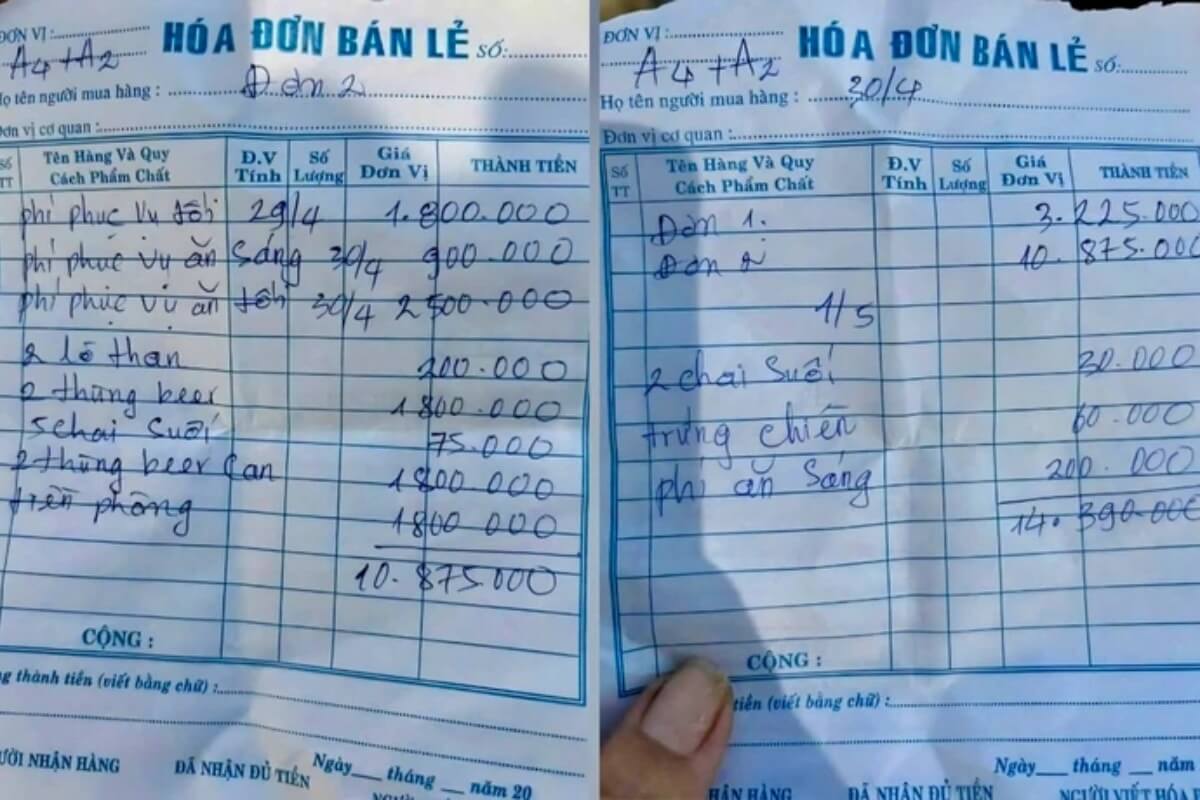 ĐƠN VỊ :
HÓA ĐƠN BÁN LẺ SỐ:
A4+A2
Họ tên người mua hàng : Đơn 2
Đơn vị cơ quan :
Số TT Tên Hàng Và Quy Cách Phẩm Chất Đ.V Tính Số Lượng Giá Đơn Vị THÀNH TIỀN
phí phục vụ tối 29/4 1.800.000
phí phục vụ ăn sáng 30/4 900.000
phí phục vụ ăn tối 30/4 2500.000
2 lò than 200.000
2 thùng beer 1800.000
5 chai suối 75.000
2 thùng beer can 1800.000
tiền phòng 1800 000
10.875.000
CỘNG :
thành tiền (viết bằng chữ) :
Ngày___ tháng ___ năm 20
NHẬN HÀNG ĐÃ NHẬN ĐỦ TIỀN
ĐƠN VỊ :
HÓA ĐƠN BÁN LẺ SỐ:
A4+A2
Họ tên người mua hàng : 30/4
Đơn vị cơ quan :
Số TT Tên Hàng Và Quy Cách Phẩm Chất Đ.V Tính Số Lượng Giá Đơn Vị THÀNH TIỀN
Đơn 1. 3.225.000
Đơn 2 10.875.000
1/5
2 chai suối 30.000
trứng chiên 60.000
phí ăn sáng 200.000
14.390.000
CỘNG :
tiền (viết bằng chữ) :
Ngày___ tháng ___ năm
NHẬN HÀNG ĐÃ NHẬN ĐỦ TIỀN NGƯỜI VIẾT HÓA